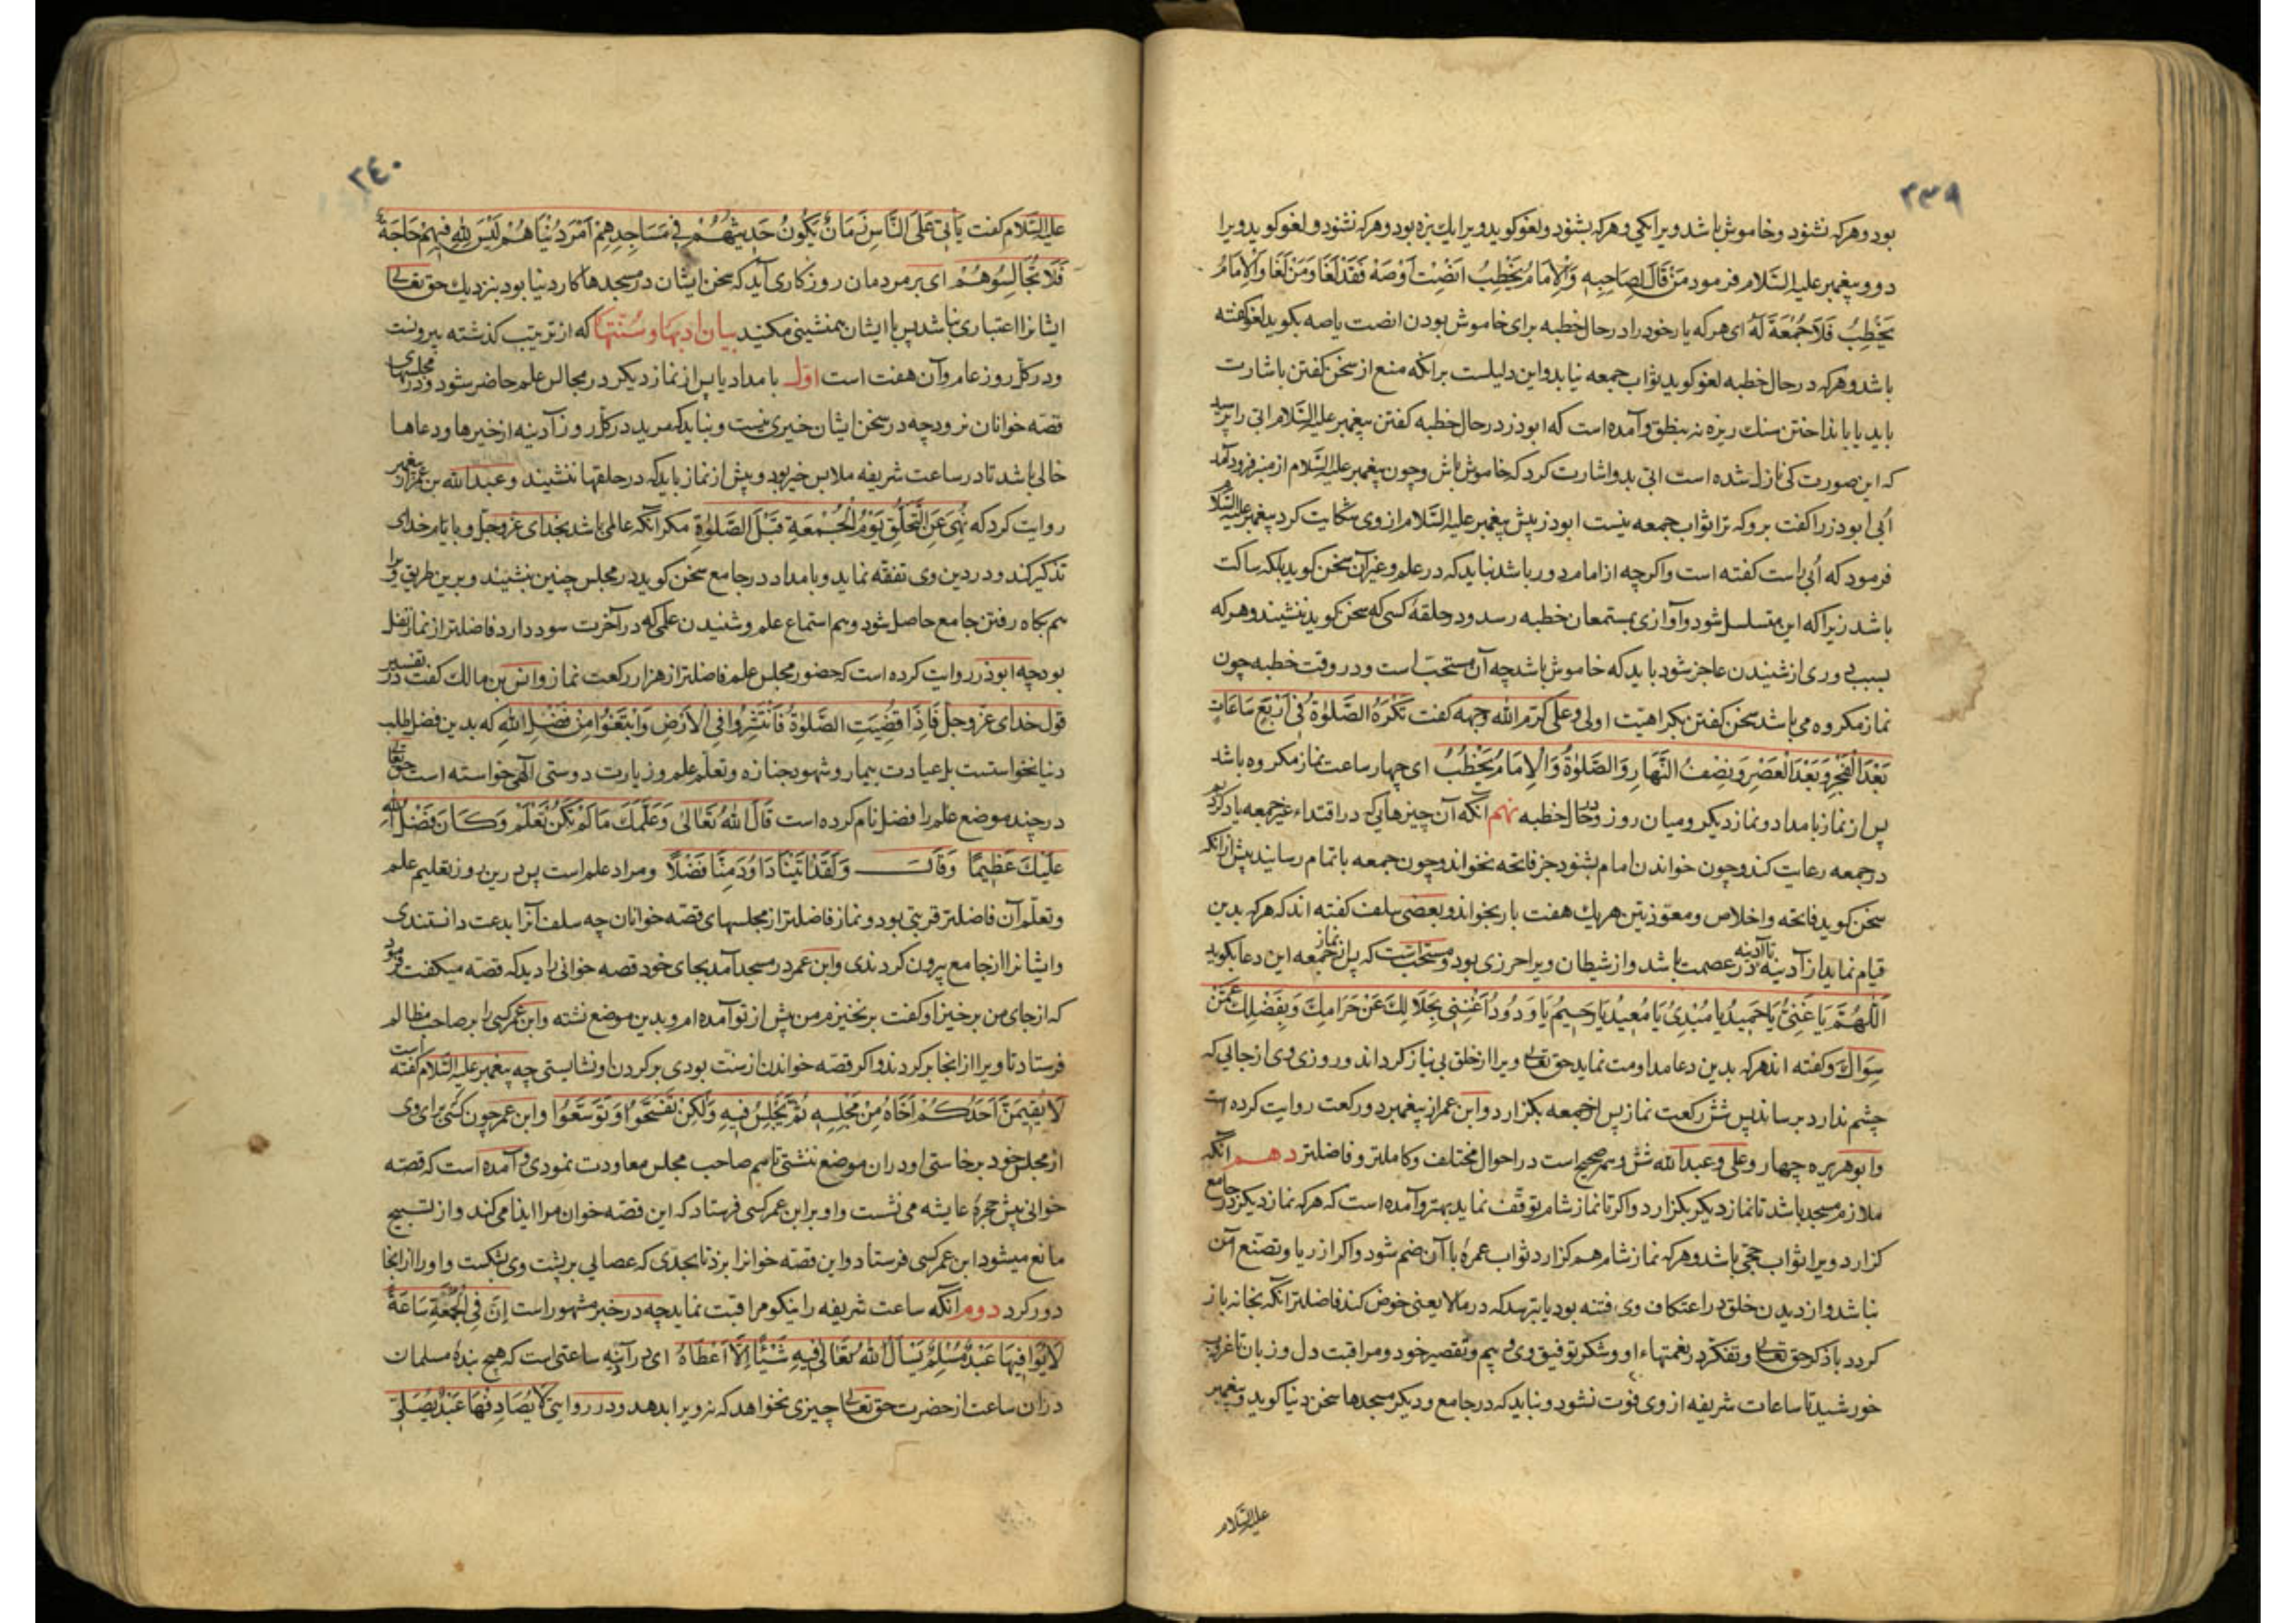 ٣٣٩
بود و هرکه نشنود و خاموش باشد ویرا یکی و هرکه بشنود و لغو کوید ویرا یك بزه بود و هرکه نشنود و لغو کوید ویرا
دو و پیغمبر علیه السّلام فرمود مَنْ قَالَ لِصَاحِبِهِ وَالْاِمَامُ یَخْطِبُ اَنْصِتْ اَوْصَهْ فَقَدْ لَغَا وَمَنْ لَغَا وَالْاِمَامُ
یَخْطِبُ فَلَا جُمُعَةَ لَهُ ای هرکه یار خود را در حال خطبه برای خاموش بودن انصت یا صه بکوید لغو کفته
باشد و هرکه در حال خطبه لغو کوید ثواب جمعه نیابد و این دلیلست برانکه منع از سخن کفتن باشارت
باید یا بانداختن سنك ریزه نه بنطق و آمده است که ابوذر در حال خطبه کفتن پیغمبر علیه السّلام ابی را پرسید
که این صورت کی نازل شده است ابی بدو اشارت کرد که خاموش باش و چون پیغمبر علیه السّلام از منبر فرود آمد
اُبی ابوذر را کفت برو که ترا ثواب جمعه نیست ابوذر پیش پیغمبر علیه السّلام از وی شکایت کرد پیغمبر علیه السّلام
فرمود که اُبی راست کفته است و اکرچه از امام دور باشد نباید که در علم و غیر آن سخن کوید بلکه ساکت
باشد زیرا که این متسلسل شود و آوازی بمستمعان خطبه رسد و در حلقهٔ کسی که سخن کوید ننشیند و هرکه
بسبب دوری از شنیدن عاجز شود باید که خاموش باشد چه آن مستحبّ است و در وقت خطبه چون
نماز مکروه می باشد سخن کفتن بکراهیّت اولی و علی کرّم الله وجهه کفت تُکْرَهُ الصَّلٰوةُ فِی اَرْبَعِ سَاعَاتٍ
بَعْدَ الْفَجْرِ وَبَعْدَ الْعَصْرِ وَنِصْفُ النَّهَارِ وَالصَّلٰوةُ وَالْاِمَامُ یَخْطِبُ ای چهار ساعت نماز مکروه باشد
پس از نماز بامداد و نماز دیکر و میان روز و در حال خطبه نهم آنکه آن چیزهایی که در اقتداء غیر جمعه یاد کردیم
در جمعه رعایت کند و چون خواندن امام بشنود جز فاتحه نخواند و چون جمعه باتمام رسانید پیش ازانکه
سخن کوید فاتحه و اخلاص و معوّذتین هر یك هفت بار بخواند و بعضی سلف کفته اند که هرکه بدین
قیام نماید از آدینه تا آدینه در عصمت باشد و از شیطان ویرا حرزی بود و مستحبّ است که پس از نماز جمعه این دعا بکوید
اَللّٰهُمَّ یَا غَنِیُّ یَا حَمِیدُ یَا مُبْدِئُ یَا مُعِیدُ یَا رَحِیمُ یَا وَدُودُ اَغْنِنِی بِحَلَالِكَ عَنْ حَرَامِكَ وَبِفَضْلِكَ عَمَّنْ
سِوَاكَ و کفته اند هرکه بدین دعا مداومت نماید حق تعالی ویرا از خلق بی نیاز کرداند و روزی وی از جایی که
چشم ندارد برساند پس شش رکعت نماز پس از جمعه بکزارد و ابن عمر از پیغمبر دو رکعت روایت کرده است
و ابوهریره چهار و علی و عبدالله شش و همه صحیح است در احوال مختلف و کاملتر و فاضلتر دهم آنکه
ملازم مسجد باشد تا نماز دیکر بکزارد و اکر تا نماز شام توقّف نماید بهتر و آمده است که هرکه نماز دیکر در جامع
کزارد ویرا ثواب حجّی باشد و هرکه نماز شام هم کزارد ثواب عمره با آن ضم شود و اکر از ریا و تصنّع آمن
نباشد و از دیدن خلق در اعتکاف وی فتنه بود یا بترسد که در مالا یعنی خوض کند فاضلتر آنکه بخانه باز
کردد با ذکر حق تعالی و تفکّر در نعمتهاء او و شکر توفیق وی و بیم و تقصیر خود و مراقبت دل و زبان تا غروب
خورشید تا ساعات شریفه از وی فوت نشود و نباید که در جامع و دیکر مسجدها سخن دنیا کوید و پیغمبر
علیه السّلام
٣٤٠
علیه السّلام کفت یَأْتِی عَلَی النَّاسِ زَمَانٌ یَکُونُ حَدِیثُهُمْ فِی مَسَاجِدِهِمْ اَمْرَ دُنْیَاهُمْ لَیْسَ لِلّٰهِ فِیهِمْ حَاجَةٌ
فَلَا تُجَالِسُوهُمْ ای بر مردمان روزکاری آید که سخن ایشان در مسجدها کار دنیا بود بنزدیك حق تعالی
ایشانرا اعتباری نباشد پس با ایشان همنشینی مکنید بیان ادبها و سُنّتها که از ترتیب کذشته بیرونست
و در کلّ روز عام و آن هفت است اوّل بامداد یا پس از نماز دیکر در مجالس علم حاضر شود و در مجلسهای
قصّه خوانان نرود چه در سخن ایشان خیری نیست و نباید که مرید در کلّ روز آدینه از خیرها و دعاها
خالی باشد تا در ساعت شریفه ملابس خیر بود و پیش از نماز باید که در حلقها ننشیند و عبدالله بن عمر از پیغمبر
روایت کرد که نُهِیَ عَنِ التَّحَلُّقِ یَوْمُ الْجُمْعَةِ قَبْلَ الصَّلٰوةِ مکر آنکه عالمی باشد بخدای عزّ وجلّ و بایّام خدای
تذکیر کند و در دین وی تفقّه نماید و بامداد در جامع سخن کوید در مجلس چنین بنشیند و برین طریق ویرا
هم بکاه رفتن جامع حاصل شود و هم استماع علم و شنیدن علمی که در آخرت سود دارد فاضلتر از نماز نفل
بود چه ابوذر روایت کرده است که حضور مجلس علم فاضلتر از هزار رکعت نماز و انس بن مالك کفت در تفسیر
قول خدای عزّ وجلّ فَاِذَا قُضِیَتِ الصَّلٰوةُ فَانْتَشِرُوا فِی الْاَرْضِ وَابْتَغُوا مِنْ فَضْلِ اللهِ که بدین فضل طلب
دنیا نخواستست بل عیادت بیمار و شهود جنازه و تعلّم علم و زیارت دوستی آلهی خواسته است حق تعالی
در چند موضع علم را فضل نام کرده است قَالَ اللهُ تَعَالٰی وَعَلَّمَكَ مَا لَمْ تَکُنْ تَعْلَمْ وَکَانَ فَضْلُ اللهِ
عَلَیْكَ عَظِیمًا وَقَالَ وَلَقَدْ اٰتَیْنَا دَاوُدَ مِنَّا فَضْلًا و مراد علم است پس درین روز تعلیم علم
و تعلّم آن فاضلتر قربتی بود و نماز فاضلتر از مجلسهای قصّه خوانان چه سلف آنرا بدعت دانستندی
و ایشانرا از جامع بیرون کردندی و ابن عمر در مسجد آمد بجای خود قصه خوانی را دید که قصّه میکفت فرمود
که از جای من برخیز او کفت برنخیزم من پیش از تو آمده ام و بدین موضع نشته و ابن عمر کسی را بر صاحب مظالم
فرستاد تا ویرا از انجا برکردند و اکر قصّه خواندن از سنّت بودی برکردن او نشایستی چه پیغمبر علیه السّلام کفته است
لَا یُقِیمَنَّ اَحَدُکُمْ اَخَاهُ مِنْ مَجْلِسِهِ ثُمَّ یَجْلِسُ فِیهِ وَلٰکِنْ تَفَسَّحُوا وَتَوَسَّعُوا و ابن عمر چون کسی برای وی
از مجلس خود برخاستی او در ان موضع ننشتی تا هم صاحب مجلس معاودت نمودی و آمده است که قصّه
خوانی پیش حجرهٔ عایشه می نشست و او بر ابن عمر کسی فرستاد که این قصّه خوان مرا ایذا می کند و از تسبیح
مانع میشود ابن عمر کسی فرستاد و این قصّه خوانرا بزد تا بحدّی که عصایی بر پشت وی بشکست و اورا از انجا
دور کرد دوم آنکه ساعت شریفه را نیکو مراقبت نماید چه در خبر مشهور است اِنَّ فِی الْجُمُعَةِ سَاعَةً
لَا یُوَافِیهَا عَبْدٌ مُسْلِمٌ یَسْأَلُ اللهَ تَعَالٰی فِیهِ شَیْئًا اِلَّا اَعْطَاهُ ای در آدینه ساعتی است که هیچ بندهٔ مسلمان
دران ساعت از حضرت حق تعالی چیزی نخواهد که نه ویرا بدهد و در روایتی لَا یُصَادِفُهَا عَبْدٌ یُصَلِّی